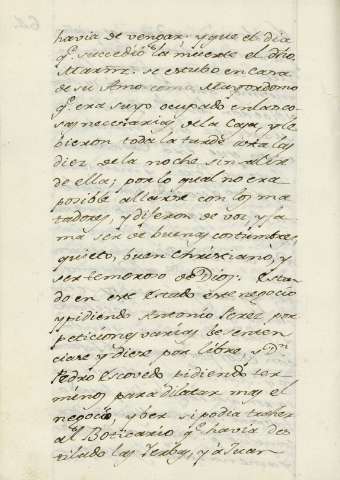 havia de vengar. y que el dia
q.e sucedió la muerte el dho
Martnz. se estubo en Casa
de su Amo como Mayordomo
q.e era suyo ocupado en las co-
sas necesarias de la Casa, y le
bieron toda la tarde asta las
diez de la noche sin salir
de ella; por lo qual no era
posible allarse con los ma-
tadores, y dijeron de voz, y fa-
ma ser de buenas costumbres,
quieto, buen Christiano, y
ser temoroso de Dios. Estan-
do en este estado este negocio
y pidiendo Antonio Perez por
peticiones varias se senten-
ciase y diese por libre, y D.n
Pedro Escovedo pidiendo ter-
minos para dilatar mas el
negocio y ber si podia traher
al Boticario q.e havia des-
tilado las Yerbas, y a Juan